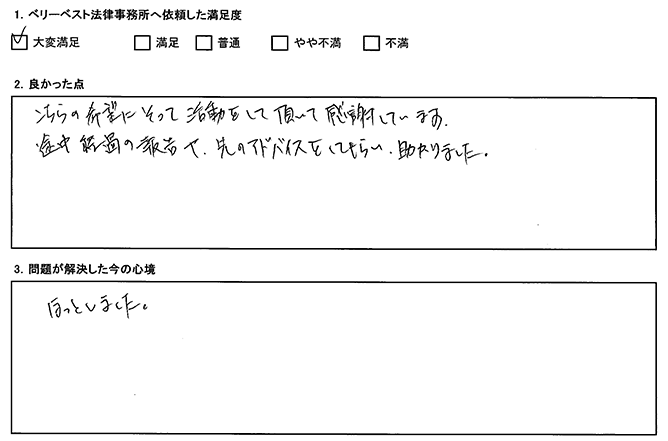 1. ベリーベスト法律事務所へ依頼した満足度
☑ 大変満足 □ 満足 □ 普通 □ やや不満 □ 不満
2. 良かった点
こちらの希望にそって活動をして頂いて感謝しています。
途中経過の報告や、先のアドバイスをしてもらい、助かりました。
3. 問題が解決した今の心境
ほっとしました。